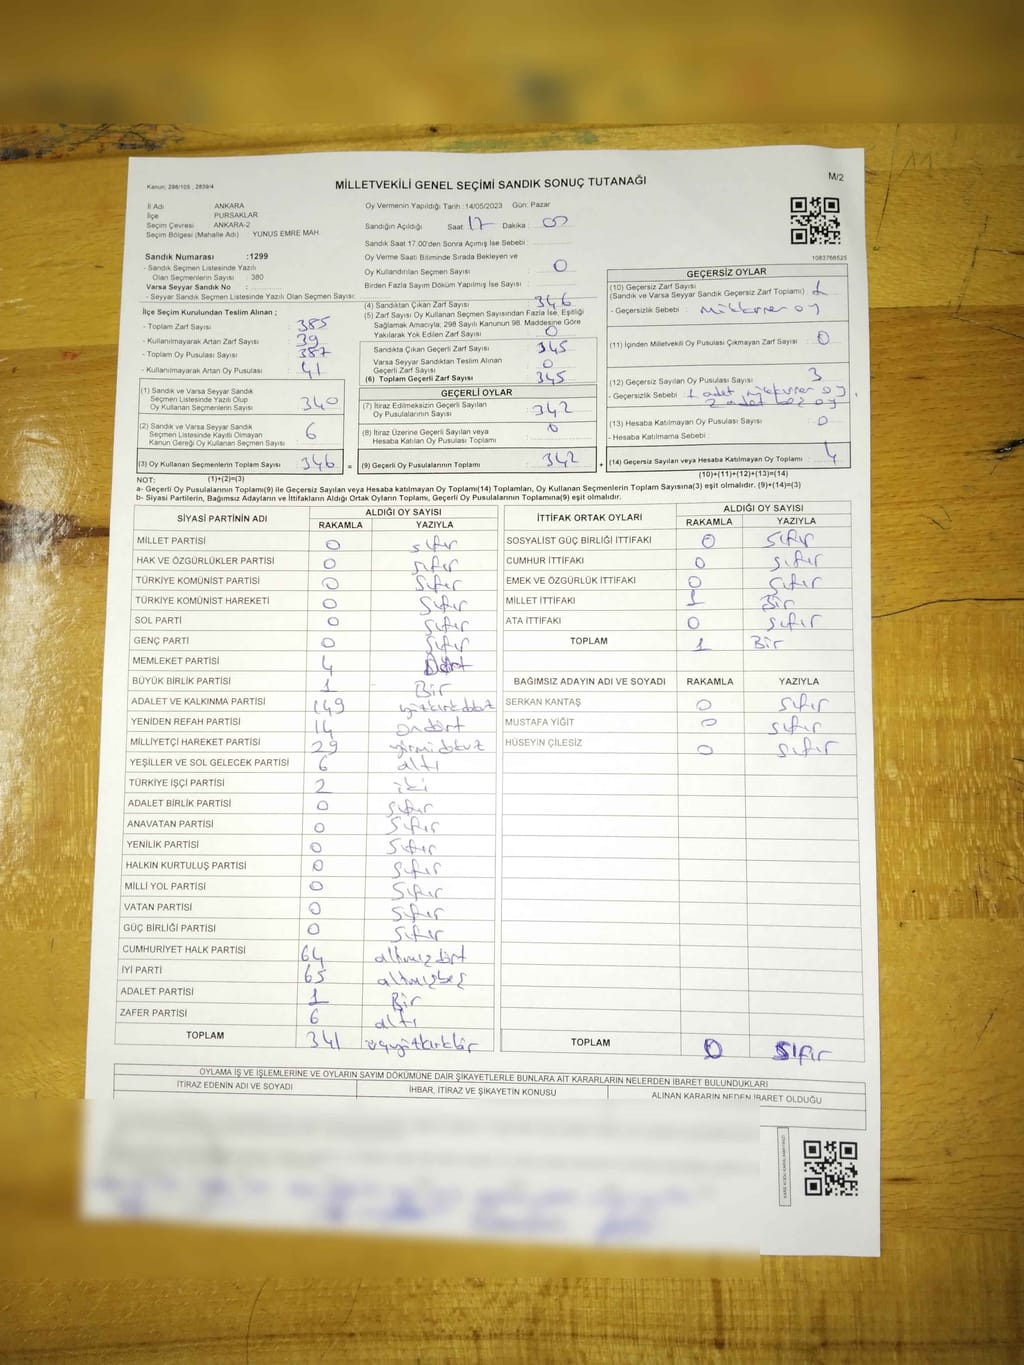 Kanun; 298/105 , 2839/4
MİLLETVEKİLİ GENEL SEÇİMİ SANDIK SONUÇ TUTANAĞI
M/2
İl Adı ANKARA
İlçe PURSAKLAR
Seçim Çevresi ANKARA-2
Seçim Bölgesi (Mahalle Adı) YUNUS EMRE MAH
Sandık Numarası :1299
- Sandık Seçmen Listesinde Yazılı
Olan Seçmenlerin Sayısı : 380
Varsa Seyyar Sandık No :
- Seyyar Sandık Listesinde Yazılı Olan Seçmen Sayısı:
İlçe Seçim Kurulundan Teslim Alınan ;
- Toplam Zarf Sayısı : 385
- Kullanılmayarak Artan Zarf Sayısı : 39
- Toplam Oy Pusulası Sayısı : 387
- Kullanılmayarak Artan Oy Pusulası : 41
(1) Sandık ve Varsa Seyyar Sandık
Seçmen Listesinde Yazılı Olup
Oy Kullanan Seçmenlerin Sayısı : 340
(2) Sandık ve Varsa Seyyar Sandık
Seçmen Listesinde Kayıtlı Olmayan
Kanun Gereği Oy Kullanan Seçmen Sayısı : 6
(3) Oy Kullanan Seçmenlerin Toplam Sayısı : 346 =
(1)+(2)=(3)
Oy Vermenin Yapıldığı Tarih :14/05/2023 Gün: Pazar
Sandığın Açıldığı Saat 17 Dakika : 00
Sandık Saat 17.00'den Sonra Açımış İse Sebebi :
Oy Verme Saati Bitiminde Sırada Bekleyen ve
Oy Kullandırılan Seçmen Sayısı : 0
Birden Fazla Sayım Döküm Yapılmış İse Sayısı :
(4) Sandıktan Çıkan Zarf Sayısı : 346
(5) Zarf Sayısı Oy Kullanan Seçmen Sayısından Fazla İse, Eşitliği
Sağlamak Amacıyla, 298 Sayılı Kanunun 98. Maddesine Göre
Yakılarak Yok Edilen Zarf Sayısı : 0
Sandıkta Çıkan Geçerli Zarf Sayısı : 345
Varsa Seyyar Sandıktan Teslim Alınan
Geçerli Zarf Sayısı : 0
(6) Toplam Geçerli Zarf Sayısı : 345
GEÇERLİ OYLAR
(7) İtiraz Edilmeksizin Geçerli Sayılan
Oy Pusulalarının Sayısı : 342
(8) İtiraz Üzerine Geçerli Sayılan veya
Hesaba Katılan Oy Pusulası Toplamı : 0
(9) Geçerli Oy Pusulalarının Toplamı : 342 +
1083766525
GEÇERSİZ OYLAR
(10) Geçersiz Zarf Sayısı
(Sandık ve Varsa Seyyar Sandık Geçersiz Zarf Toplamı) : 1
- Geçersizlik Sebebi : oy
(11) İçinden Milletvekili Oy Pusulası Çıkmayan Zarf Sayısı : 0
(12) Geçersiz Sayılan Oy Pusulası Sayısı : 3
- Geçersizlik Sebebi : 1 adet oy,
2 adet boş oy
(13) Hesaba Katılmayan Oy Pusulası Sayısı : 0
- Hesaba Katılmama Sebebi :
(14) Geçersiz Sayılan veya Hesaba Katılmayan Oy Toplamı : 4
(10)+(11)+(12)+(13)=(14)
NOT:
a- Geçerli Oy Pusulalarının Toplamı(9) ile Geçersiz Sayılan veya Hesaba Katılmayan Oy Toplamı(14) Toplamları, Oy Kullanan Seçmenlerin Toplam Sayısına(3) eşit olmalıdır. (9)+(14)=(3)
b- Siyasi Partilerin, Bağımsız Adayların ve İttifakların Aldığı Ortak Oyların Toplamı, Geçerli Oy Pusulalarının Toplamına(9) eşit olmalıdır.
SİYASİ PARTİNİN ADI ALDIĞI OY SAYISI
RAKAMLA YAZIYLA
MİLLET PARTİSİ 0 sıfır
HAK VE ÖZGÜRLÜKLER PARTİSİ 0 sıfır
TÜRKİYE KOMÜNİST PARTİSİ 0 sıfır
TÜRKİYE KOMÜNİST HAREKETİ 0 sıfır
SOL PARTİ 0 sıfır
GENÇ PARTİ 0 sıfır
MEMLEKET PARTİSİ 4 Dört
BÜYÜK BİRLİK PARTİSİ 1 Bir
ADALET VE KALKINMA PARTİSİ 149 yüzkırkdokuz
YENİDEN REFAH PARTİSİ 14 ondört
MİLLİYETÇİ HAREKET PARTİSİ 29 yirmidokuz
YEŞİLLER VE SOL GELECEK PARTİSİ 6 altı
TÜRKİYE İŞÇİ PARTİSİ 2 iki
ADALET BİRLİK PARTİSİ 0 sıfır
ANAVATAN PARTİSİ 0 sıfır
YENİLİK PARTİSİ 0 sıfır
HALKIN KURTULUŞ PARTİSİ 0 sıfır
MİLLİ YOL PARTİSİ 0 sıfır
VATAN PARTİSİ 0 sıfır
GÜÇ BİRLİĞİ PARTİSİ 0 sıfır
CUMHURİYET HALK PARTİSİ 64 altmışdört
İYİ PARTİ 65 altmışbeş
ADALET PARTİSİ 1 Bir
ZAFER PARTİSİ 6 altı
TOPLAM 341 üçyüzkırkbir
İTTİFAK ORTAK OYLARI ALDIĞI OY SAYISI
RAKAMLA YAZIYLA
SOSYALİST GÜÇ BİRLİĞİ İTTİFAKI 0 sıfır
CUMHUR İTTİFAKI 0 sıfır
EMEK VE ÖZGÜRLÜK İTTİFAKI 0 sıfır
MİLLET İTTİFAKI 1 Bir
ATA İTTİFAKI 0 sıfır
TOPLAM 1 Bir
BAĞIMSIZ ADAYIN ADI VE SOYADI RAKAMLA YAZIYLA
SERKAN KANTAŞ 0 sıfır
MUSTAFA YİĞİT 0 sıfır
HÜSEYİN ÇİLESİZ 0 sıfır
TOPLAM 0 Sıfır
OYLAMA İŞ VE İŞLEMLERİNE VE OYLARIN SAYIM DÖKÜMÜNE DAİR ŞİKAYETLERLE BUNLARA AİT KARARLARIN NELERDEN İBARET BULUNDUKLARI
İTİRAZ EDENİN ADI VE SOYADI İHBAR, İTİRAZ VE ŞİKAYETİN KONUSU ALINAN KARARIN NEDEN İBARET OLDUĞU